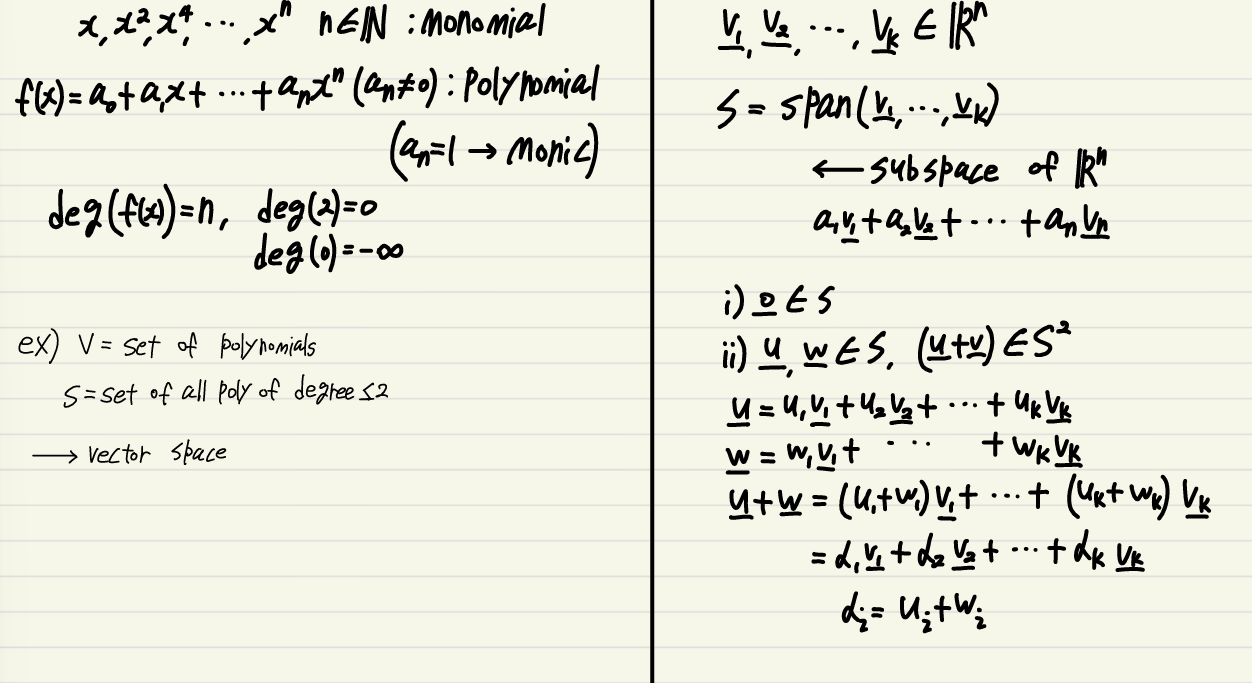 x, x², x⁴, ⋯, xⁿ n∈ℕ : monomial
f(x) = a₀ + a₁x + ⋯ + aₙxⁿ (aₙ≠0) : polynomial
(aₙ=1 → monic)
deg(f(x)) = n, deg(2)=0
deg(0)=-∞
ex) V = set of polynomials
S = set of all poly of degree ≤2
→ vector space
v₁, v₂, ⋯, vₖ ∈ ℝⁿ
S = span(v₁, ⋯, vₖ)
← subspace of ℝⁿ
a₁v₁ + a₂v₂ + ⋯ + aₙvₙ
i) 0 ∈ S
ii) u, w ∈ S, (u+v) ∈ S²
u = u₁v₁ + u₂v₂ + ⋯ + uₖvₖ
w = w₁v₁ + ⋯ + wₖvₖ
u+w = (u₁+w₁)v₁ + ⋯ + (uₖ+wₖ)vₖ
= α₁v₁ + α₂v₂ + ⋯ + αₖvₖ
αᵢ = uᵢ + wᵢ